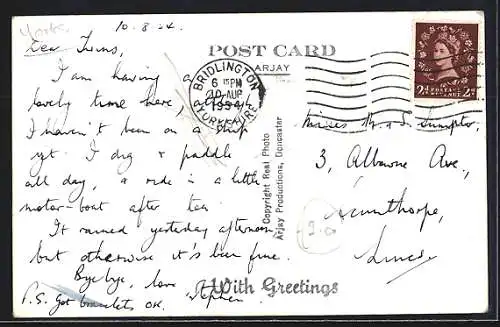 Yorks.
10.8.54.
Dear Twins,
I am having a
lovely time here, although
I haven't been on a ship
yet. I dig & paddle
all day, & ride in a little
motor-boat after tea.
It rained yesterday afternoon,
but otherwise it's been fine.
Bye bye, love
Stephen
P.S. Got bracelets OK.
POST CARD
ARJAY
BRIDLINGTON
6 15 PM
10 AUG
1954
YORKSHIRE
POSTAGE
REVENUE
2d 2d
Copyright Real Photo
Arjay Productions, Doncaster
Misses & S. Sumpter,
3, Ave.,
Scunthorpe,
Lincs.
With Greetings